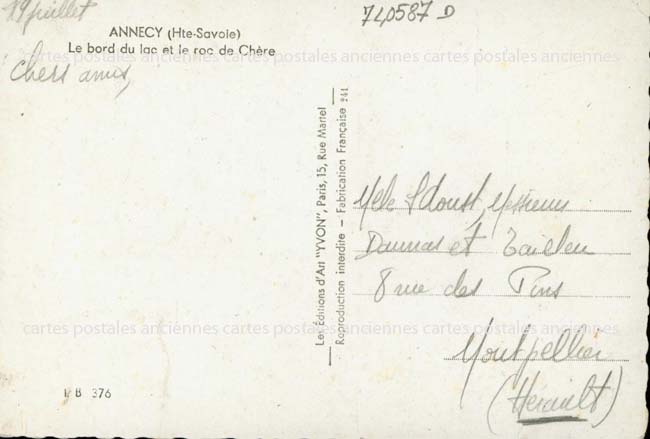 19 juillet
740587 D
ANNECY (Hte-Savoie)
Le bord du lac et le roc de Chère
cartes postales anciennes cartes postales anciennes cartes postales anciennes
Chers amis,
Les Éditions d'Art "YVON", Paris, 15, Rue Martel
Reproduction interdite — Fabrication Française
Messieurs
Daumas et
8 rue des Pins
Montpellier
(Hérault)
cartes postales anciennes cartes postales anciennes cartes postales anciennes
B 376